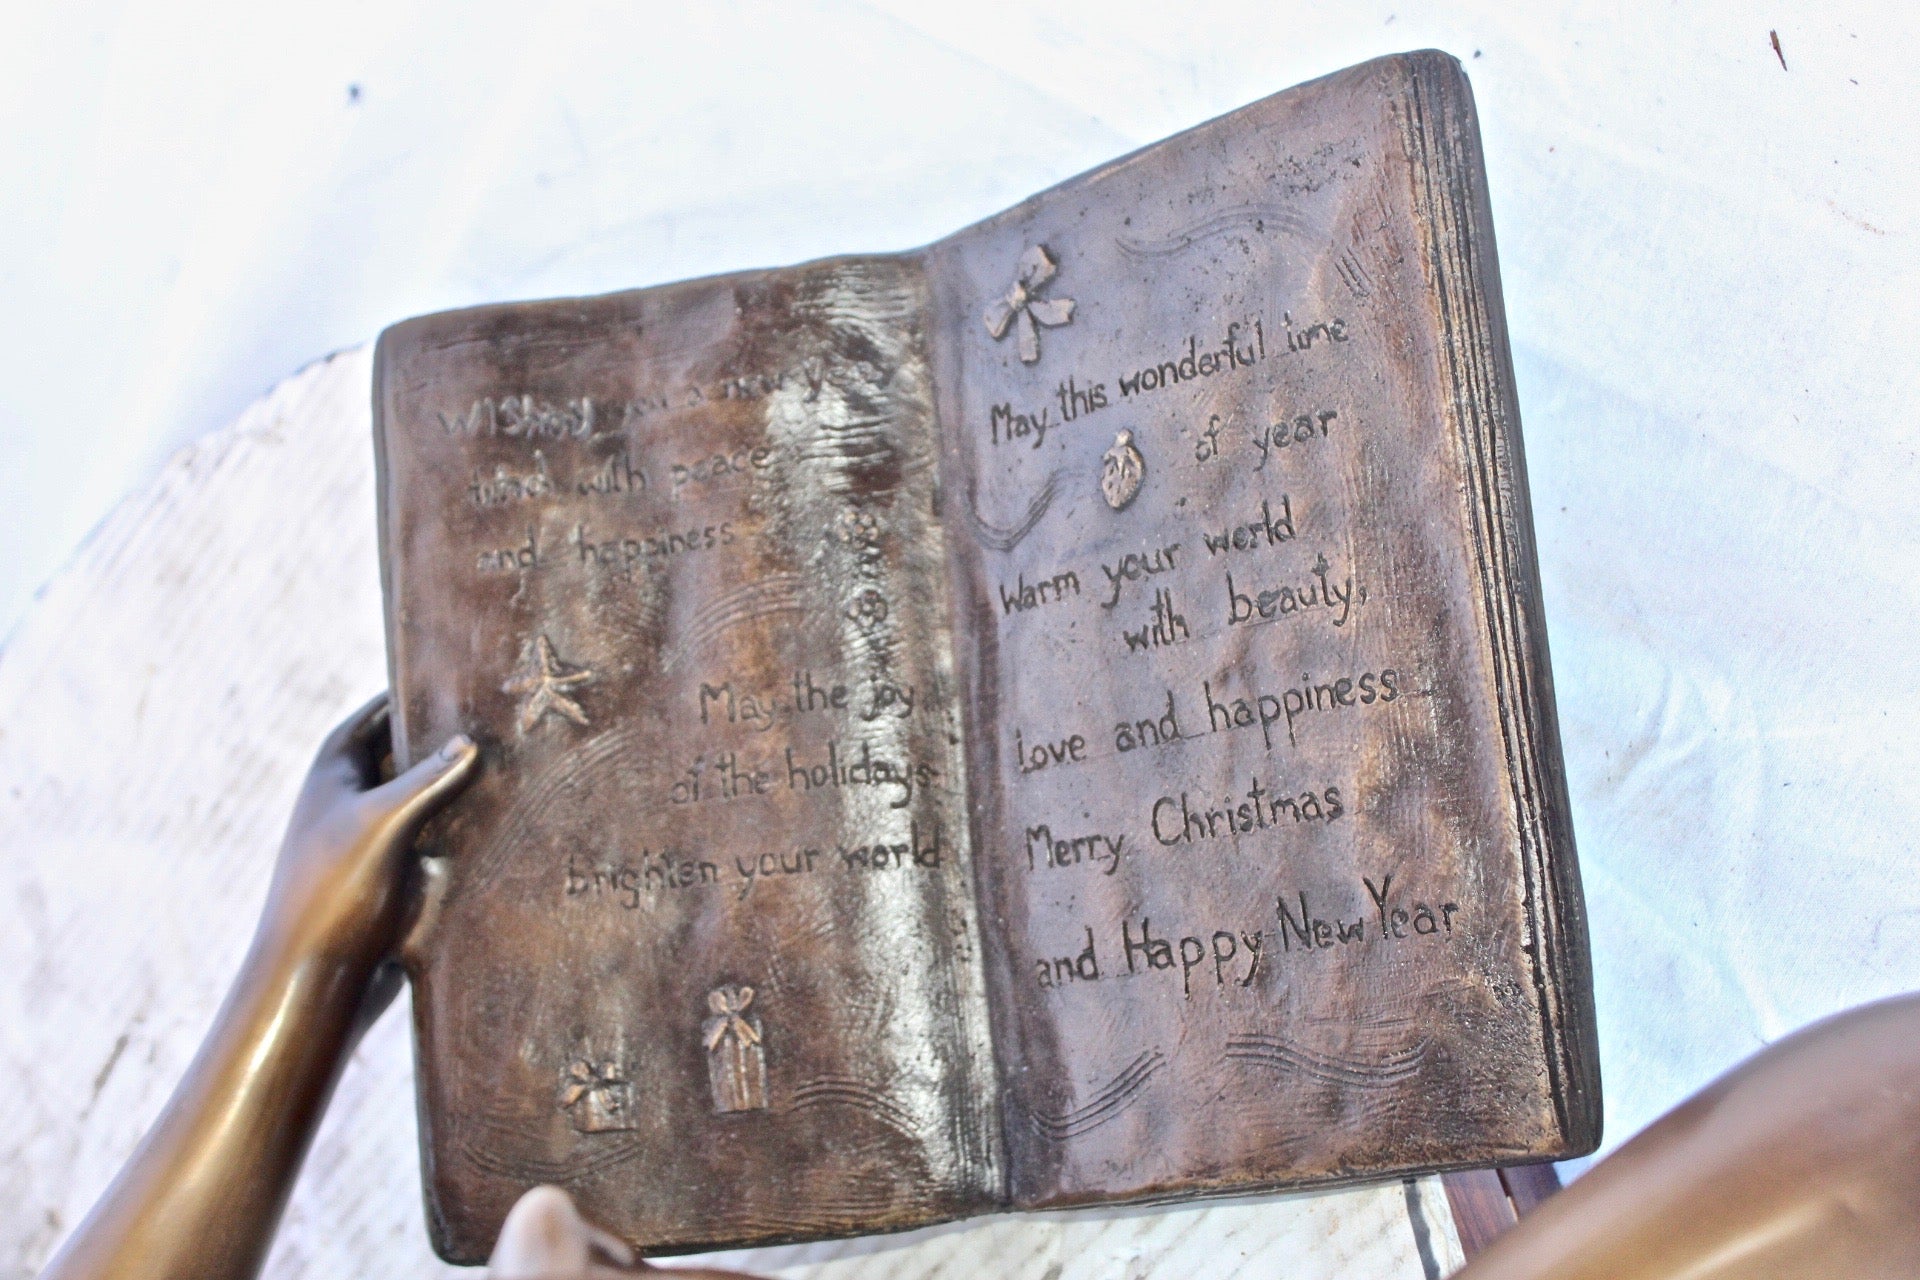 Wishing you a new year
with peace
and happiness
May the joy
of the holidays
brighten your world
May this wonderful time
of year
Warm your world
with beauty,
love and happiness
Merry Christmas
and Happy New Year